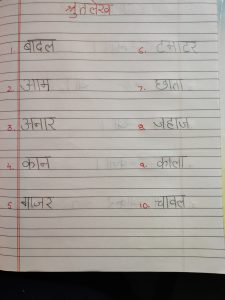 श्रुतलेख
1. बादल
2. आम
3. अनार
4. कान
5. गाजर
6. टमाटर
7. छाता
8. जहाज
9. काला
10. चावल